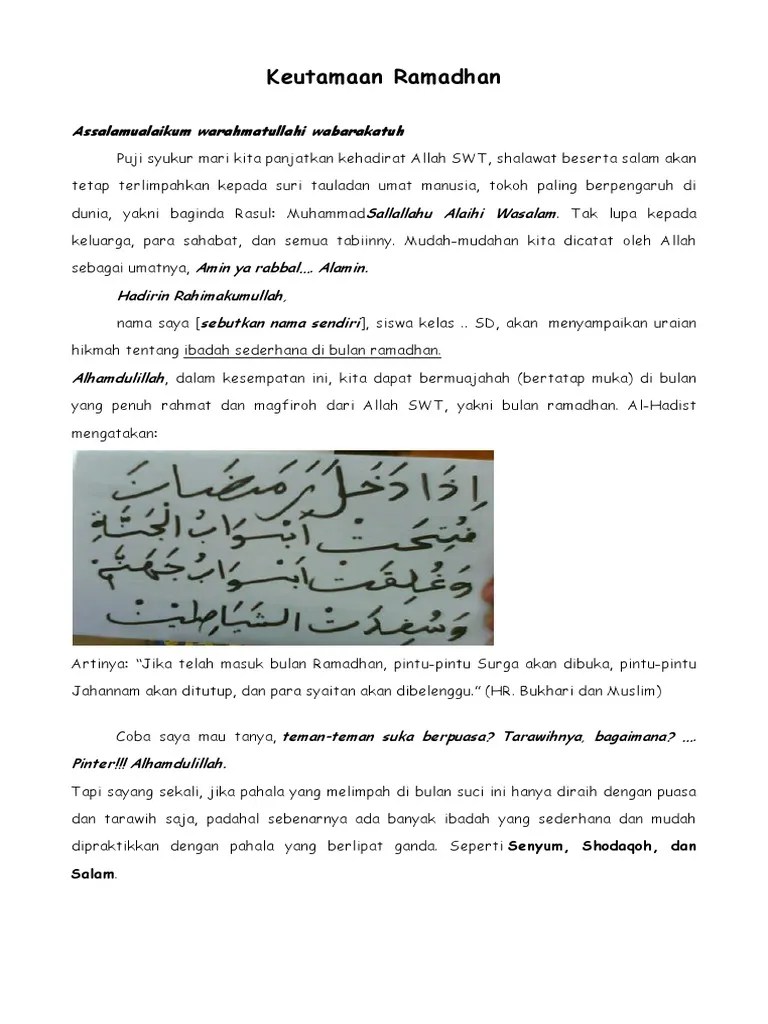 Keutamaan Ramadhan
Assalamualaikum warahmatullahi wabarakatuh
Puji syukur mari kita panjatkan kehadirat Allah SWT, shalawat beserta salam akan
tetap terlimpahkan kepada suri tauladan umat manusia, tokoh paling berpengaruh di
dunia, yakni baginda Rasul: MuhammadSallallahu Alaihi Wasalam. Tak lupa kepada
keluarga, para sahabat, dan semua tabiinny. Mudah-mudahan kita dicatat oleh Allah
sebagai umatnya, Amin ya rabbal…. Alamin.
Hadirin Rahimakumullah,
nama saya [sebutkan nama sendiri], siswa kelas .. SD, akan menyampaikan uraian
hikmah tentang ibadah sederhana di bulan ramadhan.
Alhamdulillah, dalam kesempatan ini, kita dapat bermuajahah (bertatap muka) di bulan
yang penuh rahmat dan magfiroh dari Allah SWT, yakni bulan ramadhan. Al-Hadist
mengatakan:
اِذَا دَخَلَ رَمَضَانَ
فُتِحَتْ اَبْوَابُ الْجَنَّةِ
وَغُلِقَتْ اَبْوَابُ جَهَنَّمَ
وَسُفِدَتْ الشَّيَاطِيْنْ
Artinya: “Jika telah masuk bulan Ramadhan, pintu-pintu Surga akan dibuka, pintu-pintu
Jahannam akan ditutup, dan para syaitan akan dibelenggu.” (HR. Bukhari dan Muslim)
Coba saya mau tanya, teman-teman suka berpuasa? Tarawihnya, bagaimana? ….
Pinter!!! Alhamdulillah.
Tapi sayang sekali, jika pahala yang melimpah di bulan suci ini hanya diraih dengan puasa
dan tarawih saja, padahal sebenarnya ada banyak ibadah yang sederhana dan mudah
dipraktikkan dengan pahala yang berlipat ganda. Seperti Senyum, Shodaqoh, dan
Salam.